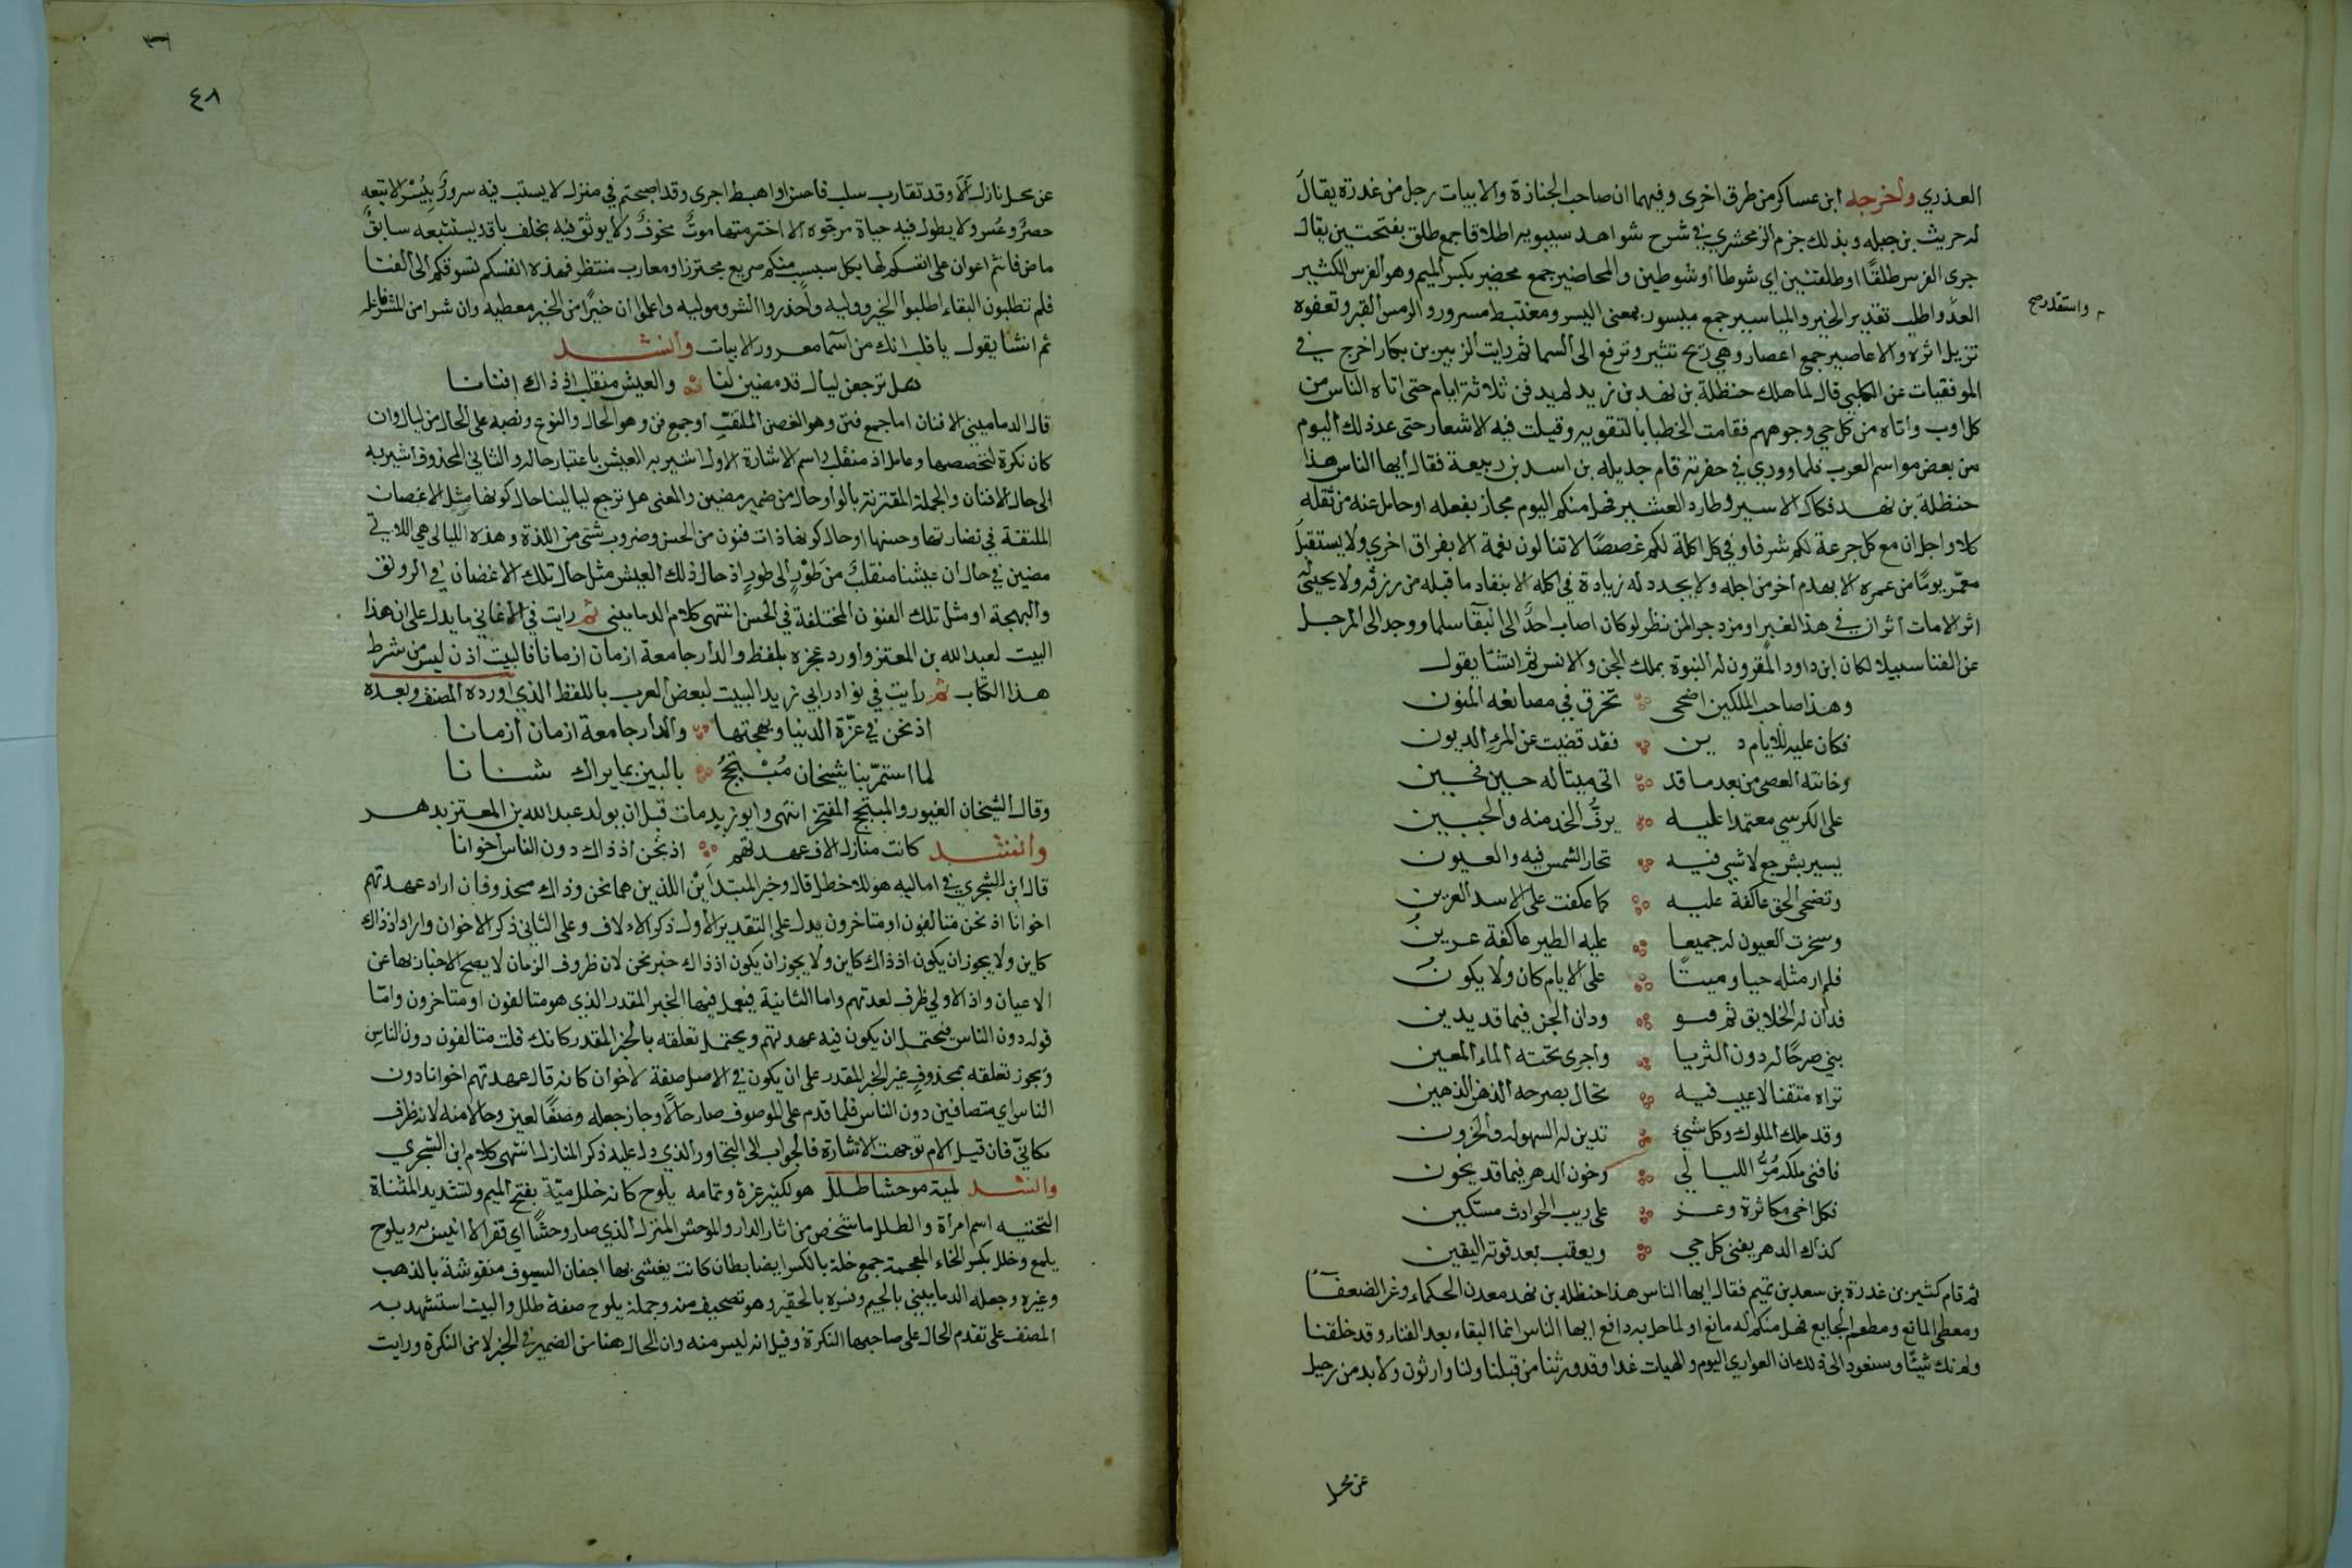 العذري وأخرجه ابن عساكر من طرق اخرى وفيهما ان صاحب الجنازة والابيات رجل من عذرة يقال
له حريث بن جبله وبذلك جزم الزمخشري في شرح شواهد سيبويه اطلاقا جمع طلق بفتحتين يقال
جرى الفرس طلقًا او طلقتين اي شوطا او شوطين والمحاضير جمع محضير بكسر الميم وهو الفرس الكثير
العدو اطلب تقدير الخير والمياسير جمع ميسور بمعنى اليسر ومغتبط مسرور والرمس القبر وتعفوه
واستقدر صح
تزيل اثره والاعاصير جمع اعصار وهي ريح تثير وترفع الى السما ثم رايت الزبير بن بكار اخرج في
الموفقيات عن الكلبي قال لما هلك حنظلة بن نهد بن زيد لم يدفن ثلاثة ايام حتى اتاه الناس من
كل اوب وأتاه من كل حي وجوههم فقامت الخطبا بالتقويه وقيلت فيه الاشعار حتى عد ذلك اليوم
من بعض مواسم العرب فلما ووري في حفرته قام جديله بن اسد بن ربيعة فقال أيها الناس هذا
حنظلة بن نهد فكاك الاسير وطارد العشير فهل منكم اليوم مجاز بفعله او حامل عنه من ثقله
كلا واجل ان مع كل جرعة لكم شرقا وفي كل اكلة لكم غصصًا لا تنالون نعمة الا بفراق اخرى ولا يستقبل
معمّر يومًا من عمره الا بهدم اخر من اجله ولا يجدد له زيادة في اكله الا بنفاد ما قبله من رزقه ولا يحيى له
اثر الا مات اثر ان في هذا لعبرا ومزدجرا لمن نظر لو كان اصاب احدٌ الى البقا سلما ووجد الى المرحل
عن الفنا سبيلا لكان ابن داود المقرون له النبوة بملك الجن والانس ثم انشا يقول
وهذا صاحب الملكين اضحى تخرق في مصانعه المنون
فكان عليه للايام دين فقد قضيت عن المرء الديون
وخانته العصى من بعد ما قد اتى ميتا له حين فحين
على الكرسي معتمدا عليه يرفّ الخد منه والجبين
يسير بشرجع لا شيء فيه تحار الشمس فيه والعيون
وتضحى الجن عاكفة عليه كما عكفت على الاسد العرين
وسخرت العيون له جميعا عليه الطير عاكفة عرين
فلم ار مثله حيا وميتًا على الايام كان ولا يكون
فدان له الخلايق ثم ودان الجن فيما قد يدين
بنى صرحًا له دون الثريا واجرى تحته الماء المعين
تراه متقنا لا عيب فيه تخال بصرحه الذهن الذهين
وقد ملك الملوك وكل شيء تدين له السهولة والحزون
فافنى ملكه مرُّ الليالي وخون الدهر فيما قد يخون
فكل اخي مكاثرة وعز على ريب الحوادث مستكين
كذاك الدهر يفنى كل حي ويعقب بعد قوته اليقين
ثم قام كثير بن عذرة بن سعد بن تميم فقال ايها الناس هذا حنظله بن نهد معدن الحكماء وعز الضعفا
ومعطى المانع ومطعم الجايع فهل منكم له مانع او لما حل به دافع ايها الناس انما البقاء بعد الفناء وقد خلقنا
ولم نك شيئًا وسنعود الى ذلك ان العواري اليوم والهبات غدا وقد ورثنا من قبلنا ولنا وارثون ولا بد من رحيل
عن محل
٤٨
عن محل نازل ألا وقد تقارب سلب فاحسن او اهبط اجرى وقد اصبحتم في منزل لا يستب فيه سرورٌ بيُسر الا تبعه
حصرٌ وعُسر ولا يطول فيه حياة مرجوه الا اخترمتها موتٌ مخوفٌ ولا يوثق فيه بخلف باق يستتبعه سابقٌ
ماض فانتم اعوان على انفسكم لها بكل سبب منكم صريع محترز او معارب منتظر فهذه انفسكم تسوقكم الى الفنا
فلم تطلبون البقاء اطلبوا الخير ووليه واحذروا الشر وموليه واعلموا ان خيرًا من الخير معطيه وان شرا من الشر فاعله
ثم انشا يقول يا قلب انك من اسما مغرور الابيات وأنشد
هل ترجعن ليال قد مضين لنا والعيش منقلب اذ ذاك افنانا
قال الدماميني الافنان اما جمع فنن وهو الغصن الملتفّ او جمع فن وهو الحال والنوع ونصبه على الحال من ليال وان
كان نكرة لتخصصها وعامل اذ منقلب واسم الاشارة الاول اشير به العيش باعتبار حاله والثاني المحذوف اشير به
الى حال الافنان والجملة المقترنة بالواو حال من ضمير مضين والمعنى هل ترجع ليالينا حال كونها مثل الاغصان
الملتفة في نضارتها وحسنها او حال كونها ذات فنون من الحسن وضروب شتى من اللذة وهذه الليالي هي اللاتي
مضين في حال ان عيشنا منقلبٌ من طَوْرٍ الى طورٍ اذ حال ذلك العيش مثل حال تلك الاغصان في الرونق
والبهجة او مثل تلك الفنون المختلفة في الحسن انتهى كلام الدماميني ثم رايت في الاغاني ما يدل على ان هذا
البيت لعبد الله بن المعتز واورد عجزه بلفظ والدار جامعة ازمان ازمانا فالبيت اذن ليس من شرط
هذا الكتاب ثم رايت في نوادر ابي زيد البيت لبعض العرب باللفظ الذي اورده المصنف وبعده
اذ نحن في عزّة الدنيا وبهجتها والدار جامعة ازمان أزمانا
لما استمرّ بنا شيخان مُبْتَجِحٌ بالبين بما يراك شنانا
وقال الشيخان الغيور والمبتجح المفتخر انتهى وابو زيد مات قبل ان يولد عبد الله بن المعتز بدهر
وأنشد كانت منازل الاف عهدتهم اذ نحن اذ ذاك دون الناس اخوانا
قال ابن الشجري في اماليه هو للاخطل قال وخبر المبتدأين اللذين هما نحن وذاك محذوفان اراد عهدتهم
اخوانا اذ نحن متالفون او متاخرون يدل على التقدير الأول ذكر الالاف وعلى الثاني ذكر الاخوان واراد اذ ذاك
كاين ولا يجوز ان يكون اذ ذاك كاين ولا يجوز ان يكون اذ ذاك خبر نحن لان ظروف الزمان لا يصح الاخبار بها عن
الاعيان واذ الاولى ظرف لعهدتهم واما الثانية فيعمل فيها الخبر المقدر الذي هو متالفون او متاخرون وامّا
قوله دون الناس فيحتمل ان يكون فيه عهدتهم ويحتمل تعلقه بالخبر المقدر كانك قلت متالفون دون الناس
ويجوز تعلقه بمحذوفٍ غير الخبر المقدر على ان يكون في الاصل صفة لاخوان كانه قال عهدتهم اخوانا دون
الناس اي متصافين دون الناس فلما قدم على الموصوف صار حالًا وجاز جعله وصفًا لعين وحالا منه لانه ظرف
مكانيّ فان قيل الام توجهت الاشارة فالجواب الى التجاور الذي دل عليه ذكر المنازل انتهى كلام ابن الشجري
وانشد لمية موحشا طلل هو لكثير عزة وتمامه يلوح كانه خلل ميّة بفتح الميم وتشديد المثناة
التحتيه اسم امرأة والطلل ما شخص من اثار الدار والموحش المنزل الذي صار وحشًا اي قفرا لا انيس به ويلوح
يلمع وخلل بكسر الخاء المعجمة جمع خلة بالكسر ايضا بطان كانت يغشى بها اجفان السيوف منقوشة بالذهب
وغيره وجعله الدماميني بالجيم وفسره بالحقير وهو تصحيف منه وجملة يلوح صفة طلل والبيت استشهد به
المصنف على تقدم الحال على صاحبها النكرة وقيل انه ليس منه وان الحال هنا من الضمير في الخبر لا من النكرة ورايت